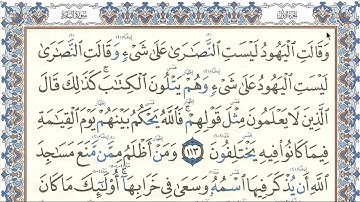 وَقَالَتِ ٱلْيَهُودُ لَيْسَتِ ٱلنَّصَٰرَىٰ عَلَىٰ شَىْءٍ وَقَالَتِ ٱلنَّصَٰرَىٰ
لَيْسَتِ ٱلْيَهُودُ عَلَىٰ شَىْءٍ وَهُمْ يَتْلُونَ ٱلْكِتَٰبَ كَذَٰلِكَ قَالَ
ٱلَّذِينَ لَا يَعْلَمُونَ مِثْلَ قَوْلِهِمْ فَٱللَّهُ يَحْكُمُ بَيْنَهُمْ يَوْمَ ٱلْقِيَٰمَةِ
فِيمَا كَانُوا۟ فِيهِ يَخْتَلِفُونَ ١١٣ وَمَنْ أَظْلَمُ مِمَّن مَّنَعَ مَسَٰجِدَ
ٱللَّهِ أَن يُذْكَرَ فِيهَا ٱسْمُهُۥ وَسَعَىٰ فِى خَرَابِهَآ أُو۟لَٰٓئِكَ مَا كَانَ